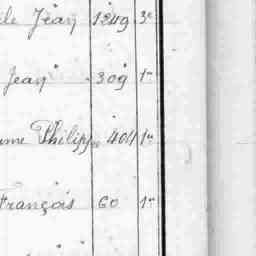 Jean 1249 3e
Jean 309 1re
Philippe 404 1re
François 60 1re